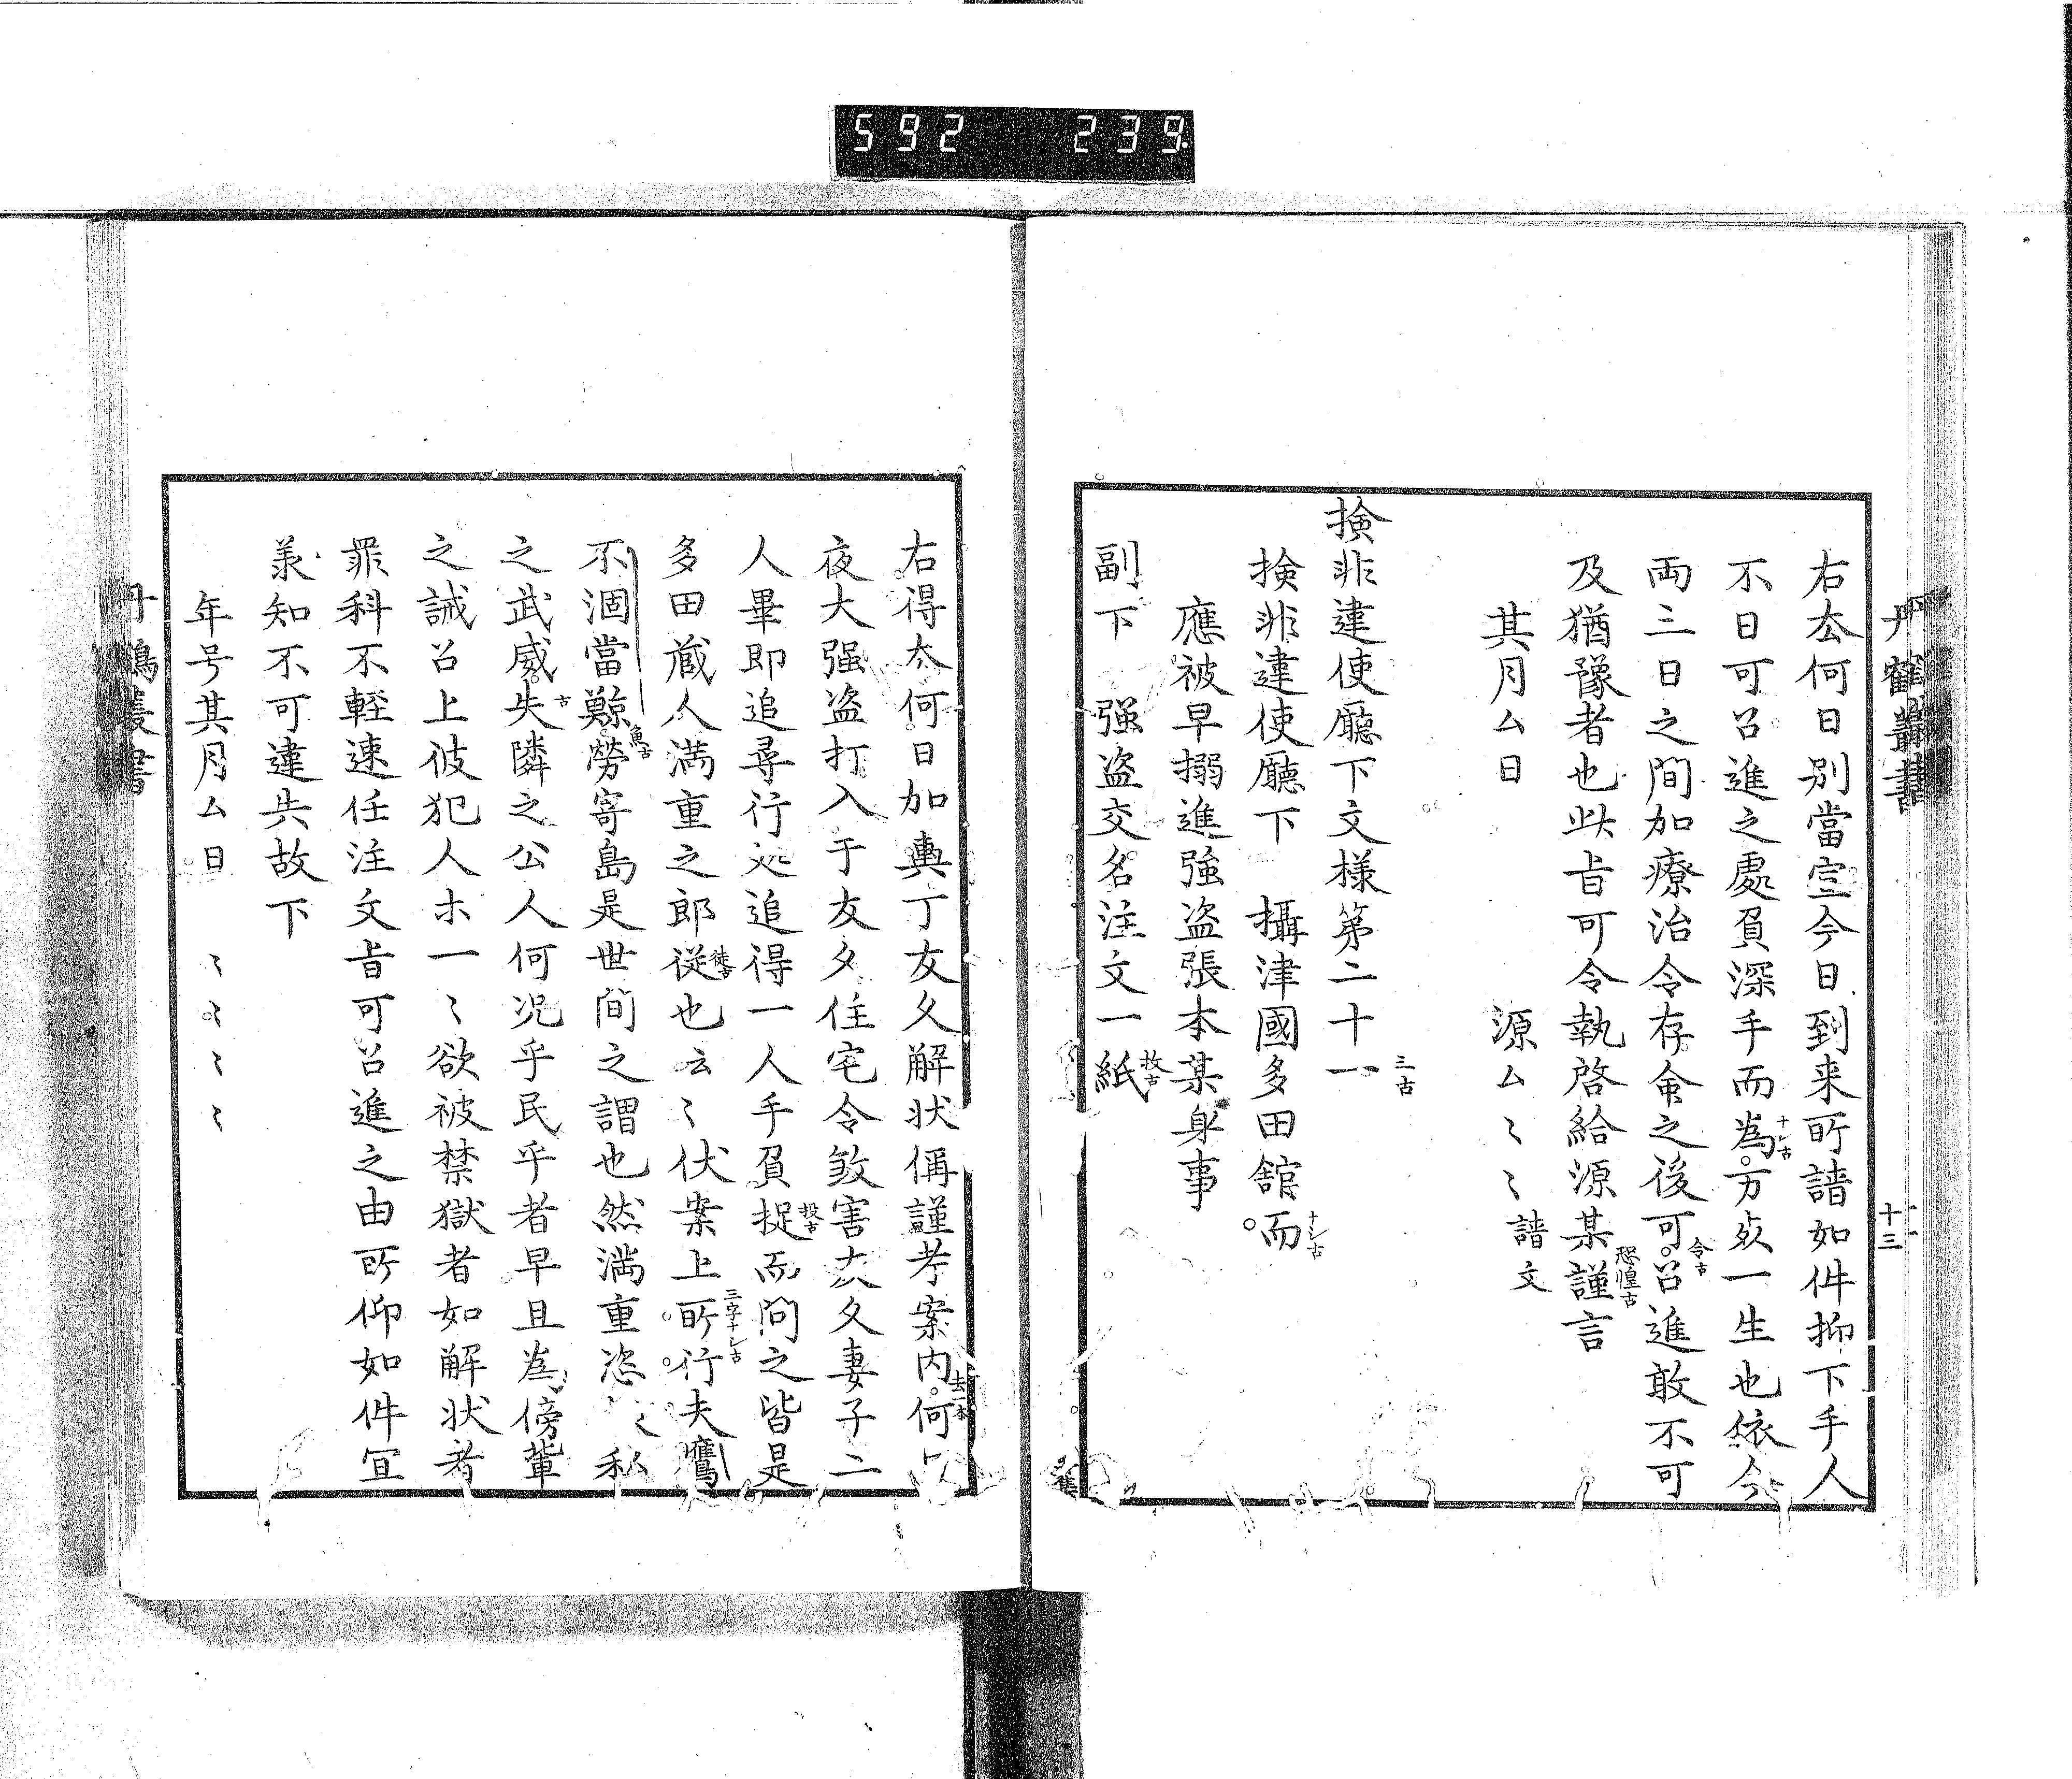 592 239
丹鶴叢書
十三
右厷何日別當宣今日到来所請如件抑下手人
不日可召進之處負深手而為方歿一生也依今
ナシ古
両三日之間加療治令存命之後可召進敢不可
令古
及猶豫者也此旨可令執啓給源某謹言
恐惶古
其月ム日 源ム〻〻請文
撿非違使廳下文様第二十一
三古
撿非違使廳下 攝津國多田舘而
ナシ古
應被早搦進強盗張本某身事
副下 强盗交名注文一紙
枚古
右得厷何日加輿丁友久解状偁謹考案内何
去一本
夜大强盗打入于友久住宅令敓害友久妻子二
人畢即追尋行処追得一人手負捉而問之皆是
投古
多田蔵人満重之郎従也云〻伏案上所行夫鷹
徒古
三字ナシ古
不涸當鯨勞寄島是世間之謂也然満重恣 私
魚古
之武威失隣之公人何况乎民乎者早且為傍輩
古
之誡召上彼犯人ホ一〻欲被禁獄者如解状者
罪科不輕速任注文旨可召進之由所仰如件宜
羕知不可違失故下
年号其月ム日 〻〻〻〻
丹鶴叢書